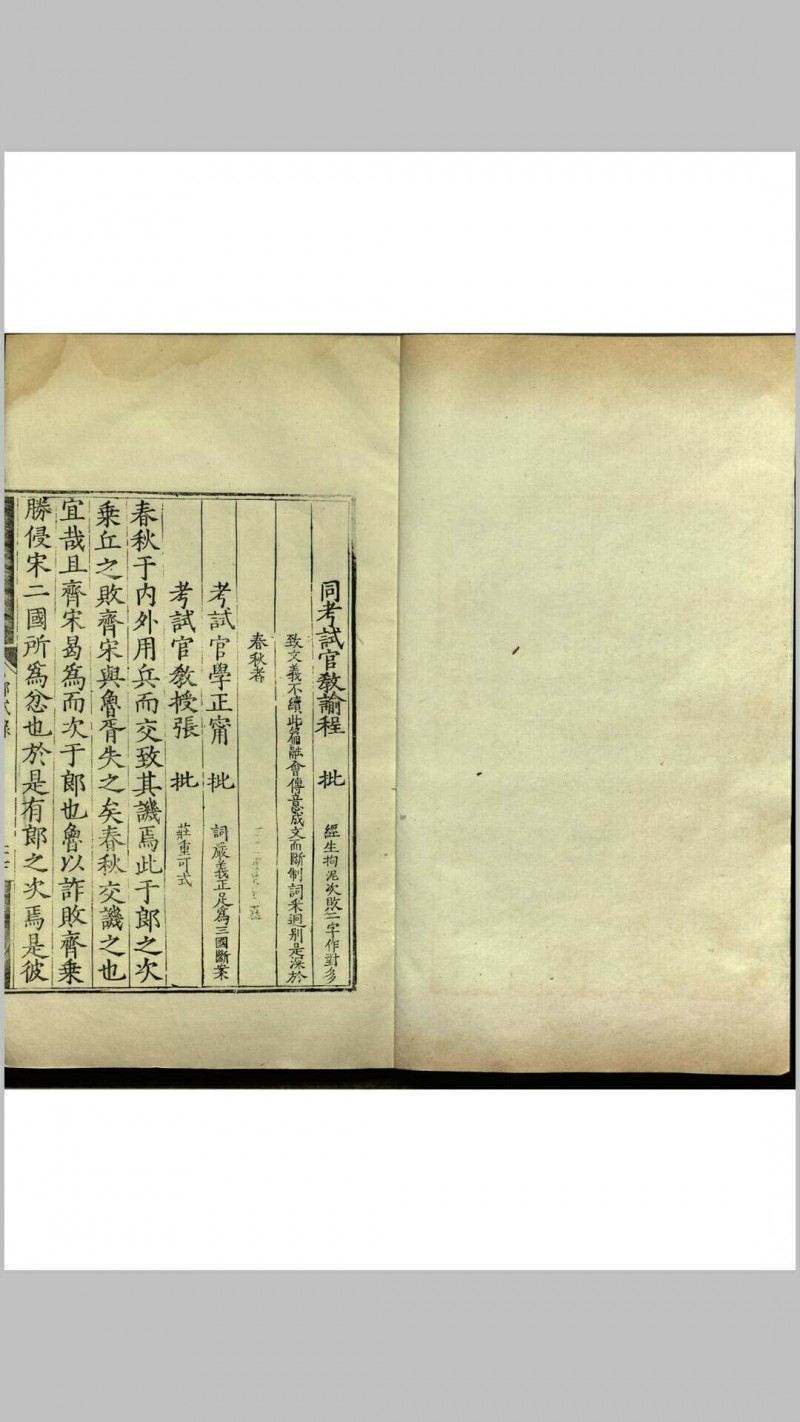 同考試官教諭程 批 經生拘泥次敗二字作對多
致文義不續此篇融會傳意成文而斷制詞采迥别是深於
春秋者
考試官學正甯 批 詞嚴義正足爲三國斷案
考試官教授張 批 莊重可式
春秋于内外用兵而交致其譏焉此于郎之次
乗丘之敗齊宋與魯胥失之矣春秋交譏之也
宜哉且齊宋曷爲而次于郎也魯以詐敗齊乗
勝侵宋二國所爲忿也於是有郎之次焉是彼